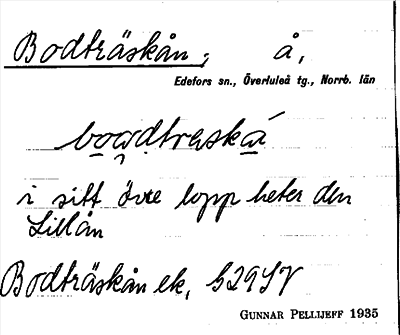 Bodträskån; å,
Edefors sn., Överluleå tg., Norrb. län
i sitt övre lopp heter den
Lillån
Bodträskån ek,
GUNNAR PELLIJEFF 1935